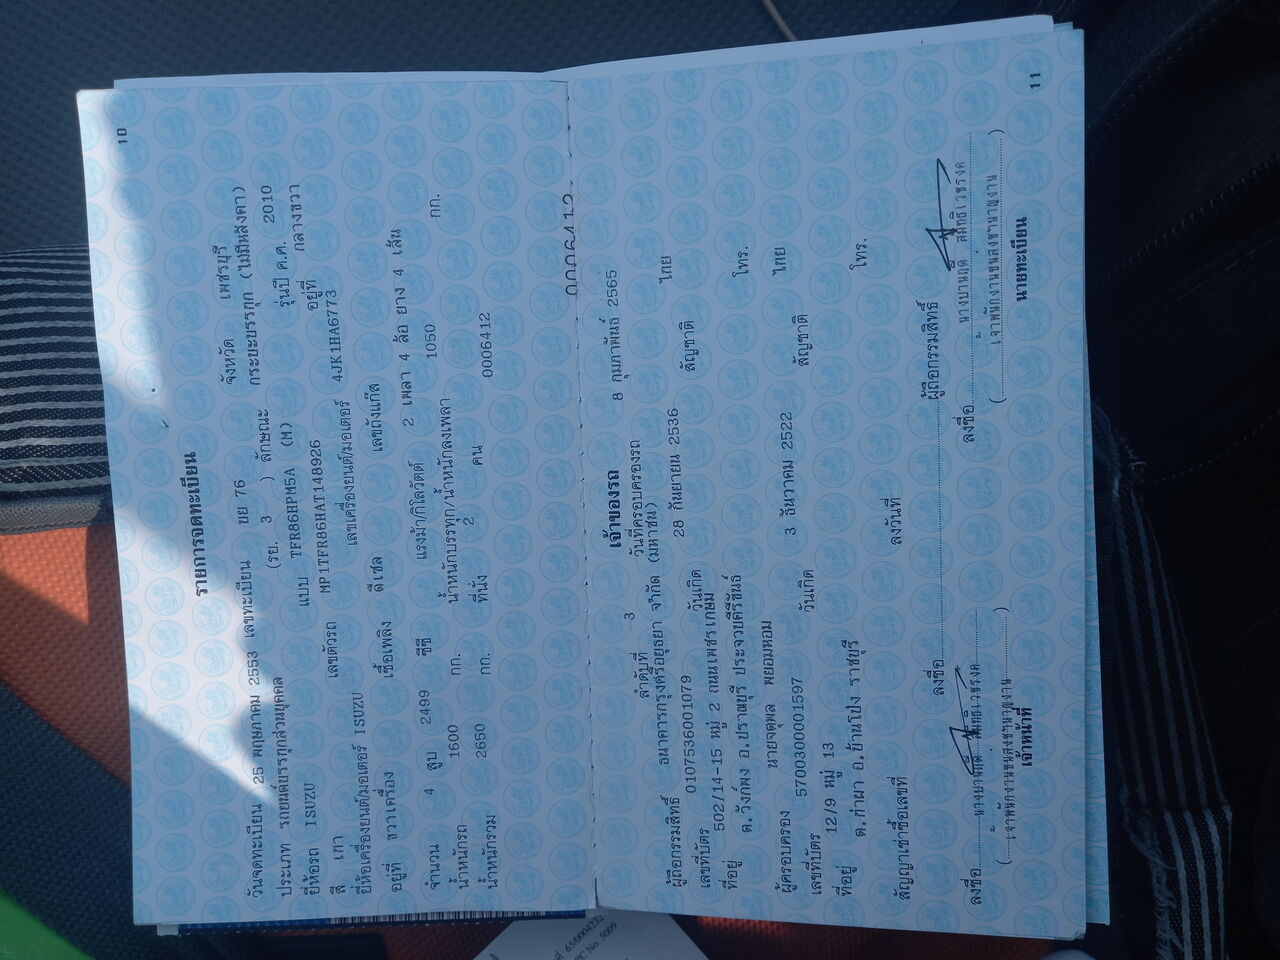 10
รายการจดทะเบียน
วันจดทะเบียน 25 พฤษภาคม 2553 เลขทะเบียน ขย 76 จังหวัด เพชรบุรี
ประเภท รถยนต์บรรทุกส่วนบุคคล (รย. 3 ) ลักษณะ กระบะบรรทุก (ไม่มีหลังคา)
ยี่ห้อรถ ISUZU แบบ TFR86HPM5A (M) รุ่นปี ค.ศ. 2010
สี เทา เลขตัวรถ MP1TFR86HAT148926 อยู่ที่ กลางขวา
ยี่ห้อเครื่องยนต์/มอเตอร์ ISUZU เลขเครื่องยนต์/มอเตอร์ 4JK1HA6773
อยู่ที่ ขวาเครื่อง เชื้อเพลิง ดีเซล เลขถังแก๊ส
จำนวน 4 สูบ 2499 ซีซี แรงม้า/กิโลวัตต์ 2 เพลา 4 ล้อ ยาง 4 เส้น
น้ำหนักรถ 1600 กก. น้ำหนักบรรทุก/น้ำหนักลงเพลา 1050 กก.
น้ำหนักรวม 2650 กก. ที่นั่ง 2 คน 0006412
0006412
เจ้าของรถ
ลำดับที่ 3 วันที่ครอบครองรถ 8 กุมภาพันธ์ 2565
ผู้ถือกรรมสิทธิ์ ธนาคารกรุงศรีอยุธยา จำกัด (มหาชน)
เลขที่บัตร 0107536001079 วันเกิด 28 กันยายน 2536 สัญชาติ ไทย
ที่อยู่ 502/14-15 หมู่ 2 ถนนเพชรเกษม
ต.วังก์พง อ.ปราณบุรี ประจวบคีรีขันธ์ โทร.
ผู้ครอบครอง นายจตุพล พยอมหอม
เลขที่บัตร 5700300001597 วันเกิด 3 ธันวาคม 2522 สัญชาติ ไทย
ที่อยู่ 12/9 หมู่ 13
ต.ท่าผา อ.บ้านโป่ง ราชบุรี โทร.
สัญญาเช่าซื้อเลขที่ ลงวันที่
ลงชื่อ ผู้ถือกรรมสิทธิ์
ลงชื่อ ลงชื่อ
(เจ้าพนักงานขนส่งชำนาญงาน) (เจ้าพนักงานขนส่งชำนาญงาน)
เจ้าหน้าที่ นายทะเบียน
11
65/0004232
PC No. 5009